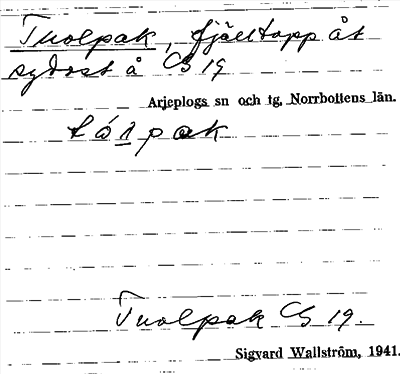 Tuolpak, fjälltopp åt
sydost å CG 19
Arjeplogs sn och tg, Norrbottens län.
Tuolpak CG 19.
Sigvard Wallström, 1941.